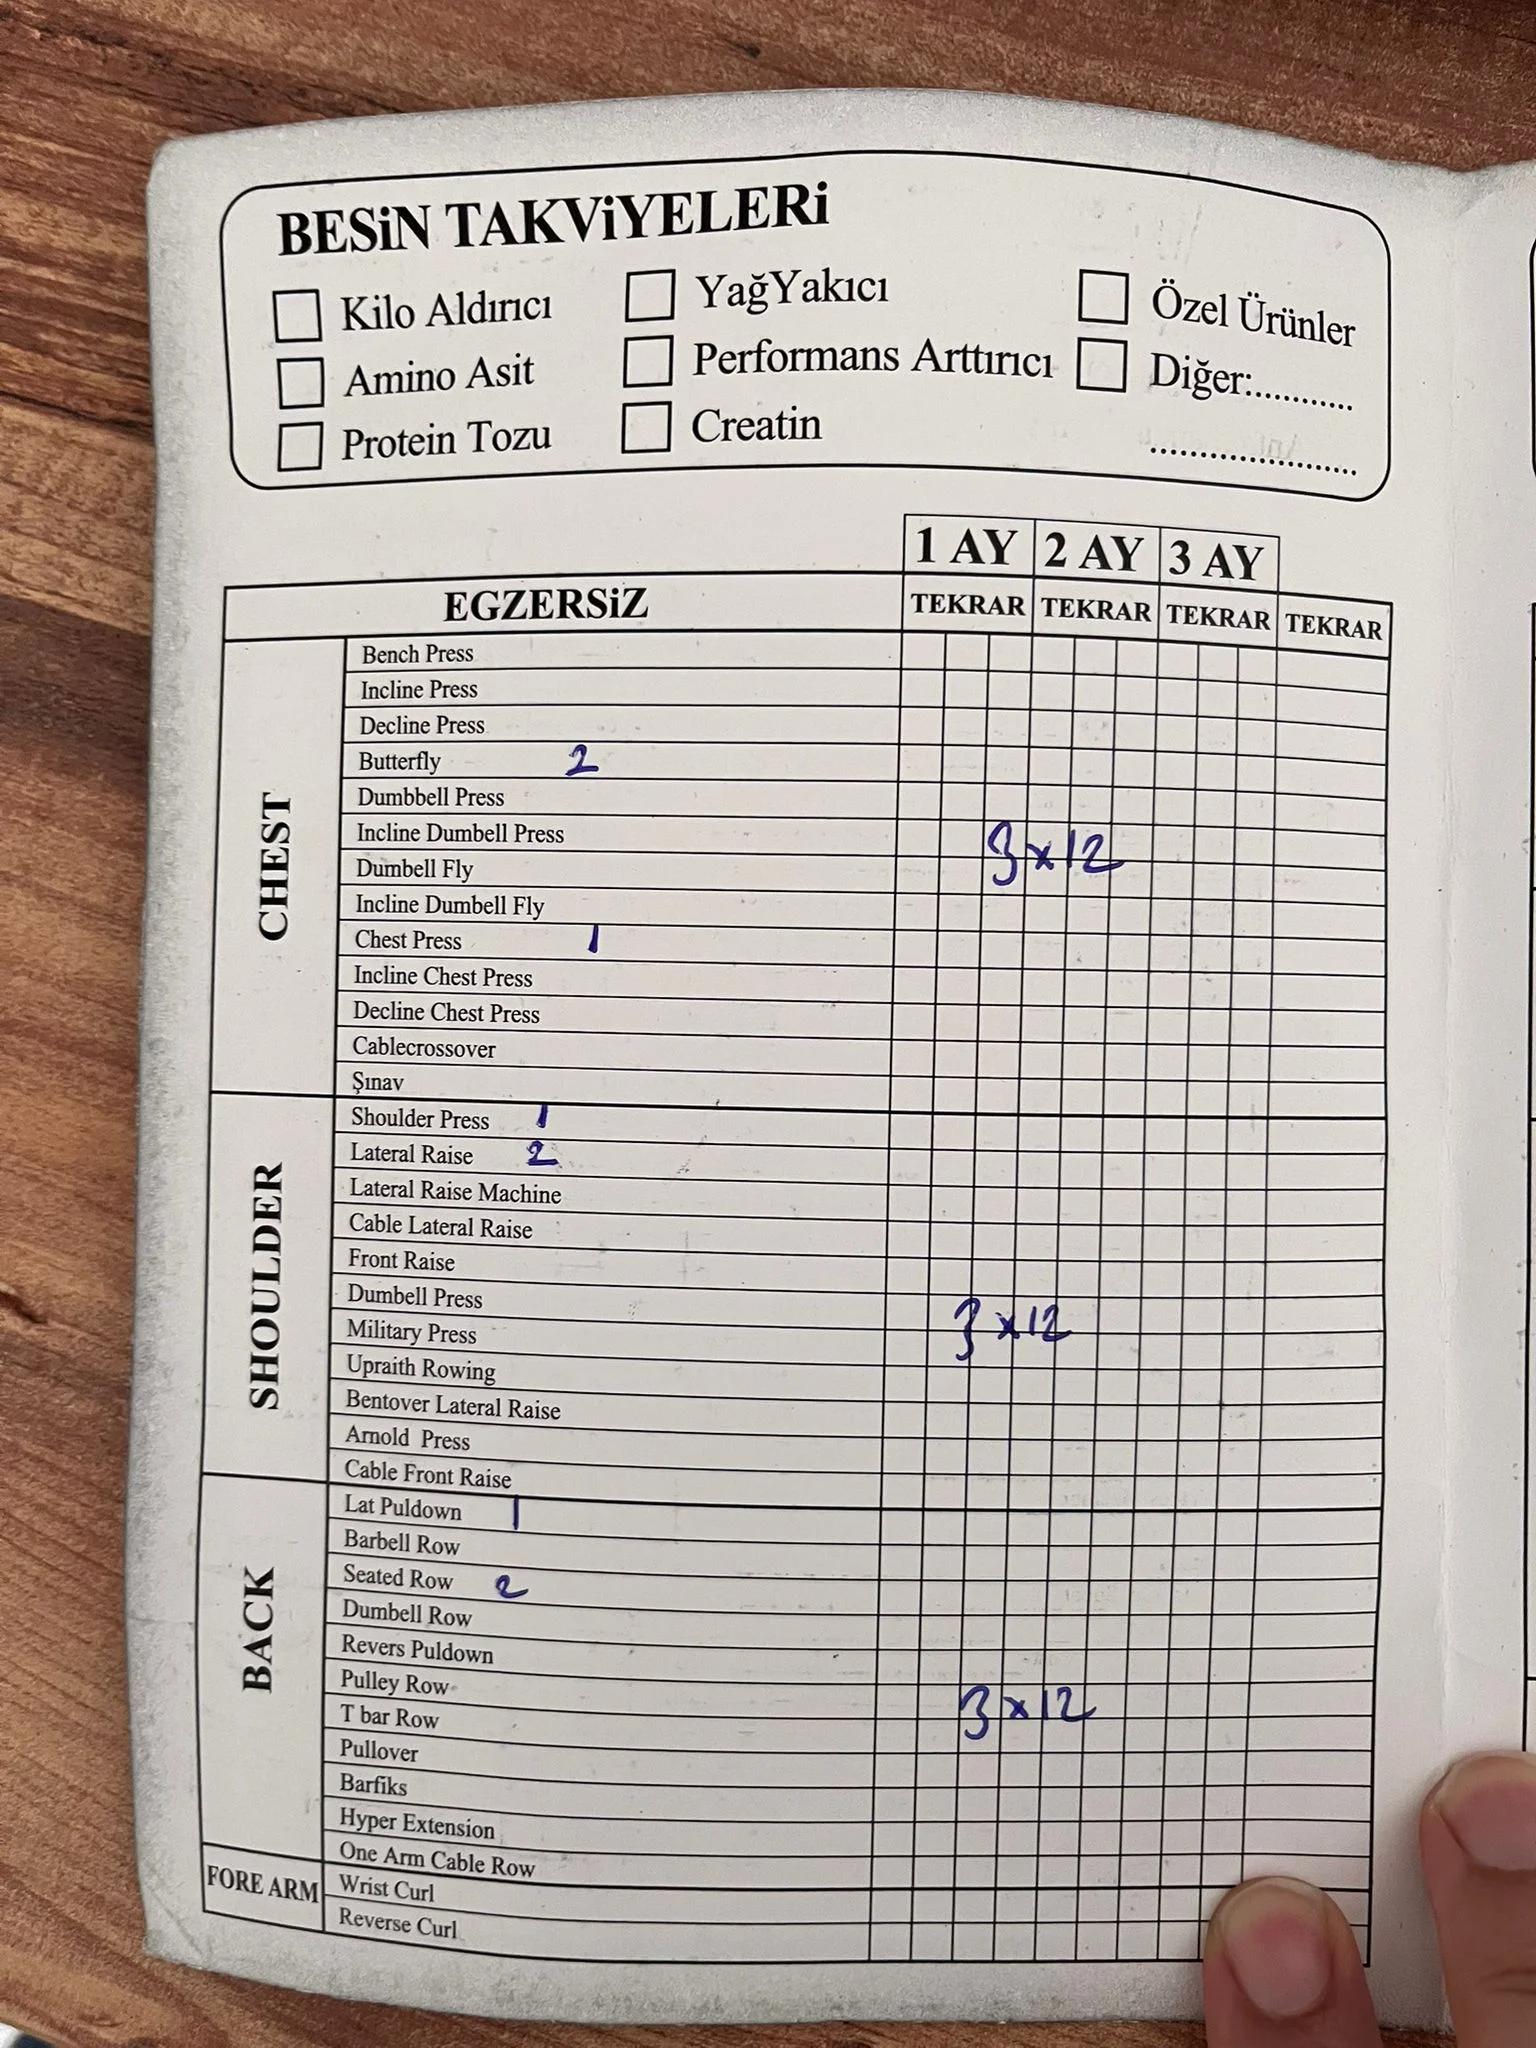 BESiN TAKViYELERi
Kilo Aldırıcı YağYakıcı Özel Ürünler
Amino Asit Performans Arttırıcı Diğer:...........
Protein Tozu Creatin ......................
1 AY 2 AY 3 AY
EGZERSiZ TEKRAR TEKRAR TEKRAR TEKRAR
CHEST
Bench Press
Incline Press
Decline Press
Butterfly 2
Dumbbell Press
Incline Dumbell Press 3x12
Dumbell Fly
Incline Dumbell Fly
Chest Press 1
Incline Chest Press
Decline Chest Press
Cablecrossover
Şınav
SHOULDER
Shoulder Press 1
Lateral Raise 2
Lateral Raise Machine
Cable Lateral Raise
Front Raise
Dumbell Press
Military Press 3x12
Upraith Rowing
Bentover Lateral Raise
Arnold Press
Cable Front Raise
BACK
Lat Puldown 1
Barbell Row
Seated Row 2
Dumbell Row
Revers Puldown
Pulley Row 3x12
T bar Row
Pullover
Barfiks
Hyper Extension
One Arm Cable Row
FORE ARM
Wrist Curl
Reverse Curl